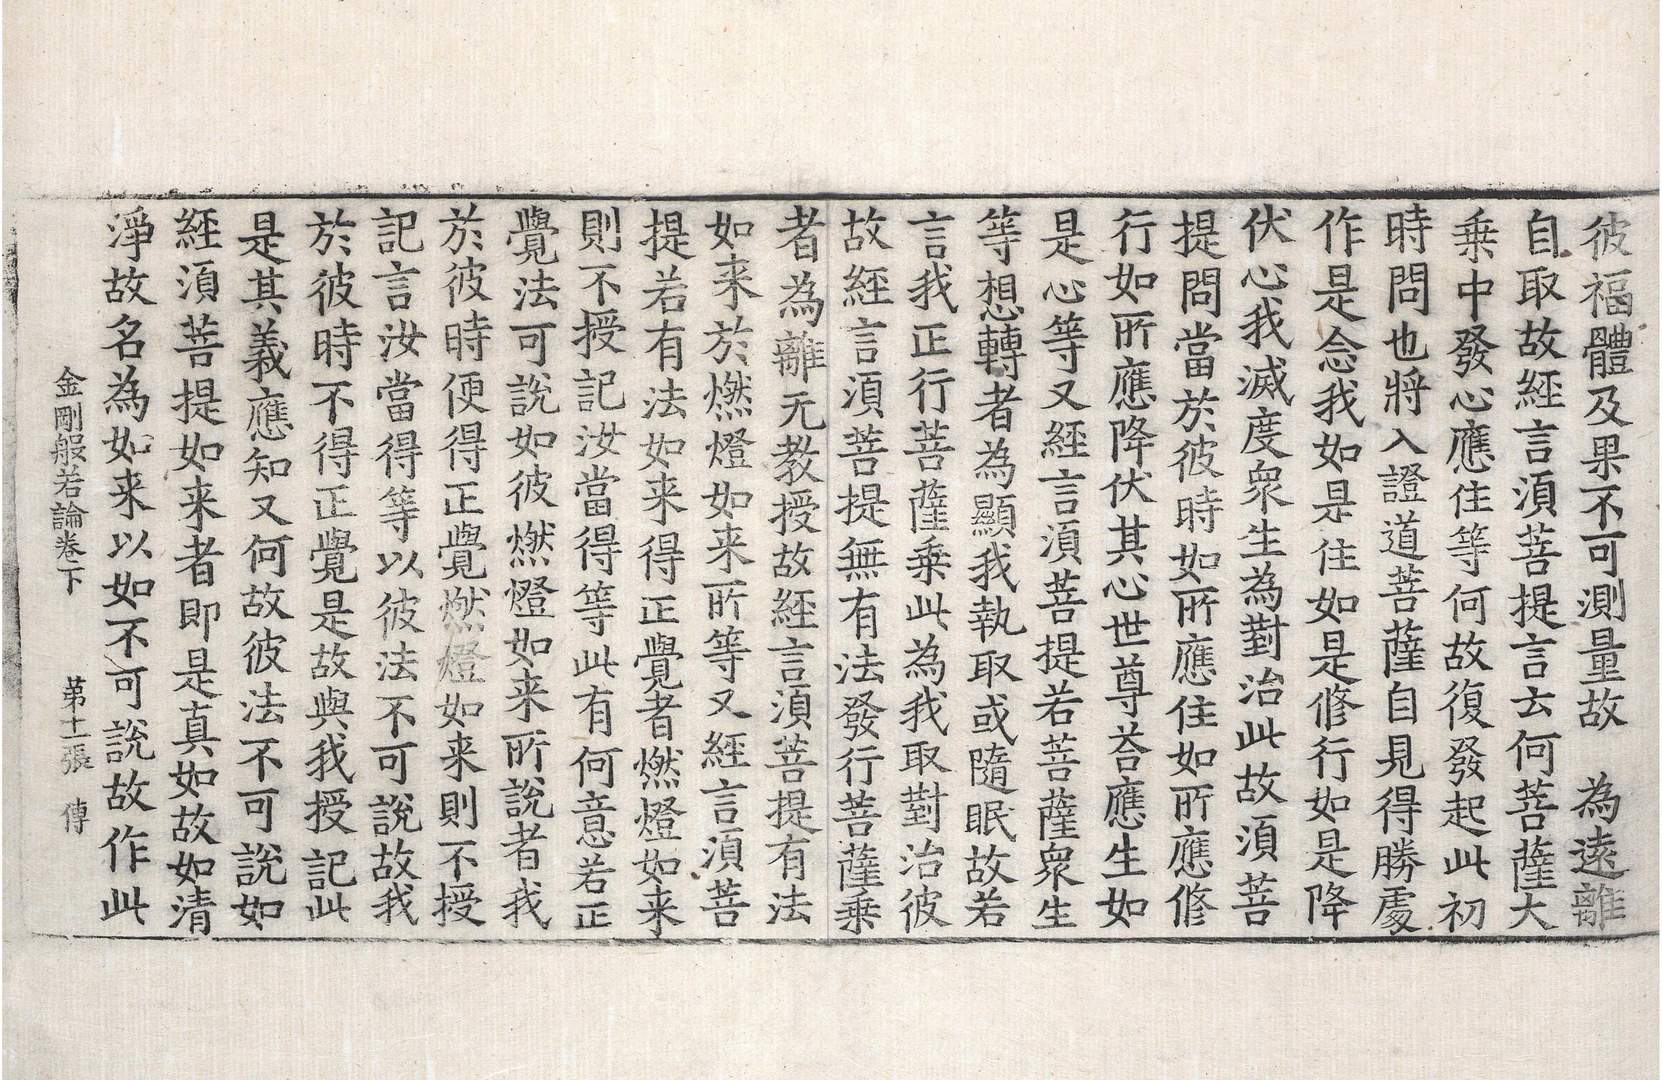 彼福體及果不可測量故　為遠離
自取故經言湏菩提言云何菩薩大
乗中發心應住等何故復發起此初
時問也將入證道菩薩自見得勝處
作是念我如是住如是修行如是降
伏心我滅度衆生為對治此故湏菩
提問當於彼時如所應住如所應修
行如所應降伏其心世尊荅應生如
是心等又經言湏菩提若菩薩衆生
等想轉者為顯我執取或隨眠故若
言我正行菩薩乗此為我取對治彼
故經言湏菩提無有法發行菩薩乗
者為離无教授故經言湏菩提有法
如来於燃燈如来所等又經言湏菩
提若有法如来得正覺者燃燈如来
則不授記汝當得等此有何意若正
覺法可說如彼燃燈如来所說者我
於彼時便得正覺燃燈如来則不授
記言汝當得等以彼法不可說故我
於彼時不得正覺是故與我授記此
是其義應知又何故彼法不可說如
經湏菩提如来者即是真如故如清
淨故名為如来以如不可說故作此
金剛般若論卷下　第十一張　傳